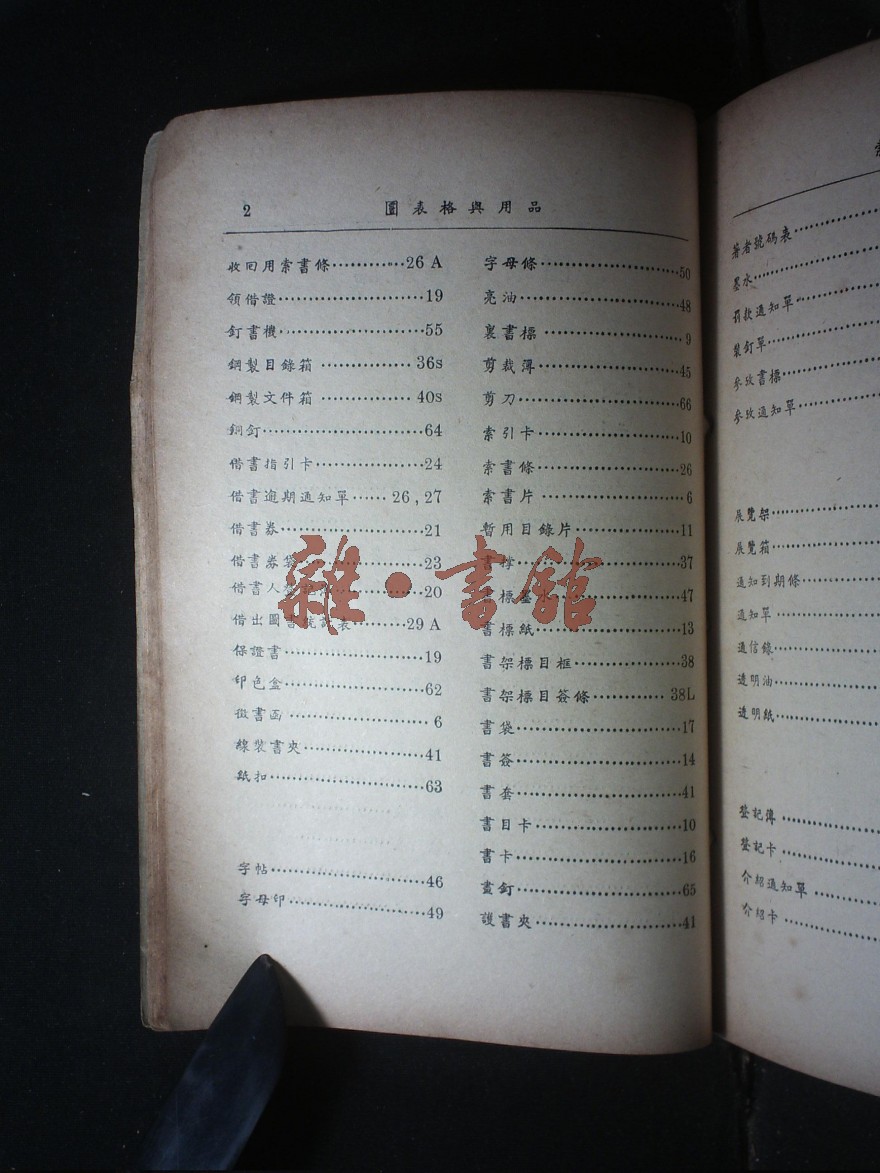 2 圕表格與用品
收回用索書條…………26 A
領借證……………………19
釘書機……………………55
鋼製目錄箱……………36s
鋼製文件箱……………40s
銅釘………………………64
借書指引卡………………24
借書逾期通知單……26,27
借書券……………………21
借書券袋…………………23
借書人…………20
借出圖書統計表………29 A
保證書……………………19
印色盒……………………62
徵書函……………………6
線裝書夾…………………41
紙扣………………………63
字帖………………………46
字母印……………………49
字母條……………………50
亮油………………………48
裏書標……………………9
剪裁薄……………………45
剪刀………………………66
索引卡……………………10
索書條……………………26
索書片……………………6
暫用目錄片………………11
書撐………………………37
書標墨水…………………47
書標紙……………………13
書架標目框………………38
書架標目簽條…………38L
書袋………………………17
書簽………………………14
書套………………………41
書目卡……………………10
書卡………………………16
畫釘………………………65
護書夾……………………41
著者號碼表……………
墨水……………
罰款通知單……………
製釘單……………
參攷書標……………
參攷通知單……………
展覽架……………
展覽箱……………
通知到期條……………
通知單……………
通信錄……………
透明油……………
透明紙……………
登記簿……………
登記卡……………
介紹通知單……………
介紹卡……………
雜·書館